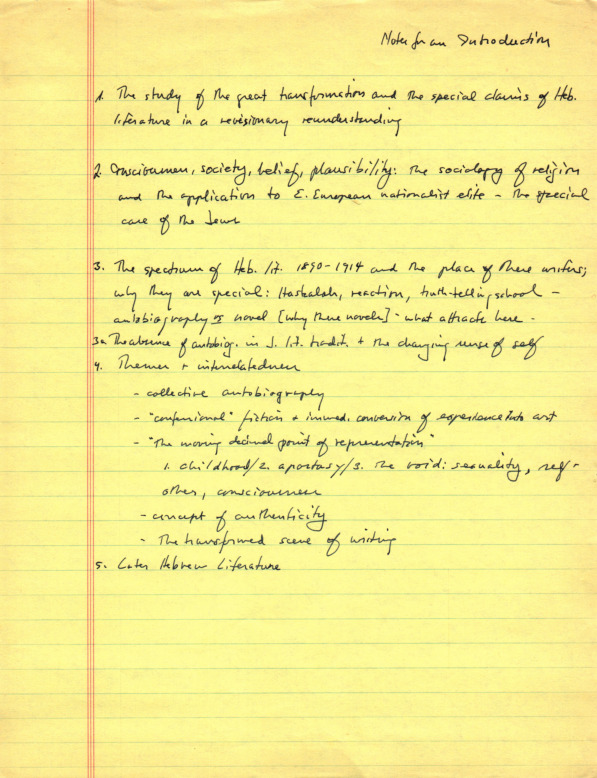 Notes for an Introduction
1. The study of the great transformation and the special claims of Heb.
literature in a revisionary reunderstanding
2. Consciousness, society, belief, plausibility: the sociology of religion
and the application to E. European nationalist elite - the special
case of the Jews
3. The spectrum of Heb. lit. 1890-1914 and the place of these writers;
why they are special: Haskalah, reaction, truth-telling school -
autobiography vs novel [why these novels] - what attracts here -
3a. The absence of autobiog. in J. lit. tradit. + the changing sense of self
4. Themes + interrelatedness
- collective autobiography
- "confessional" fiction + immed. conversion of experience into art
- "The moving decimal point of representation"
1. childhood/2. apostasy/3. the void: sexuality, self +
other, consciousness
- concept of authenticity
- The transformed scene of writing
5. Later Hebrew Literature